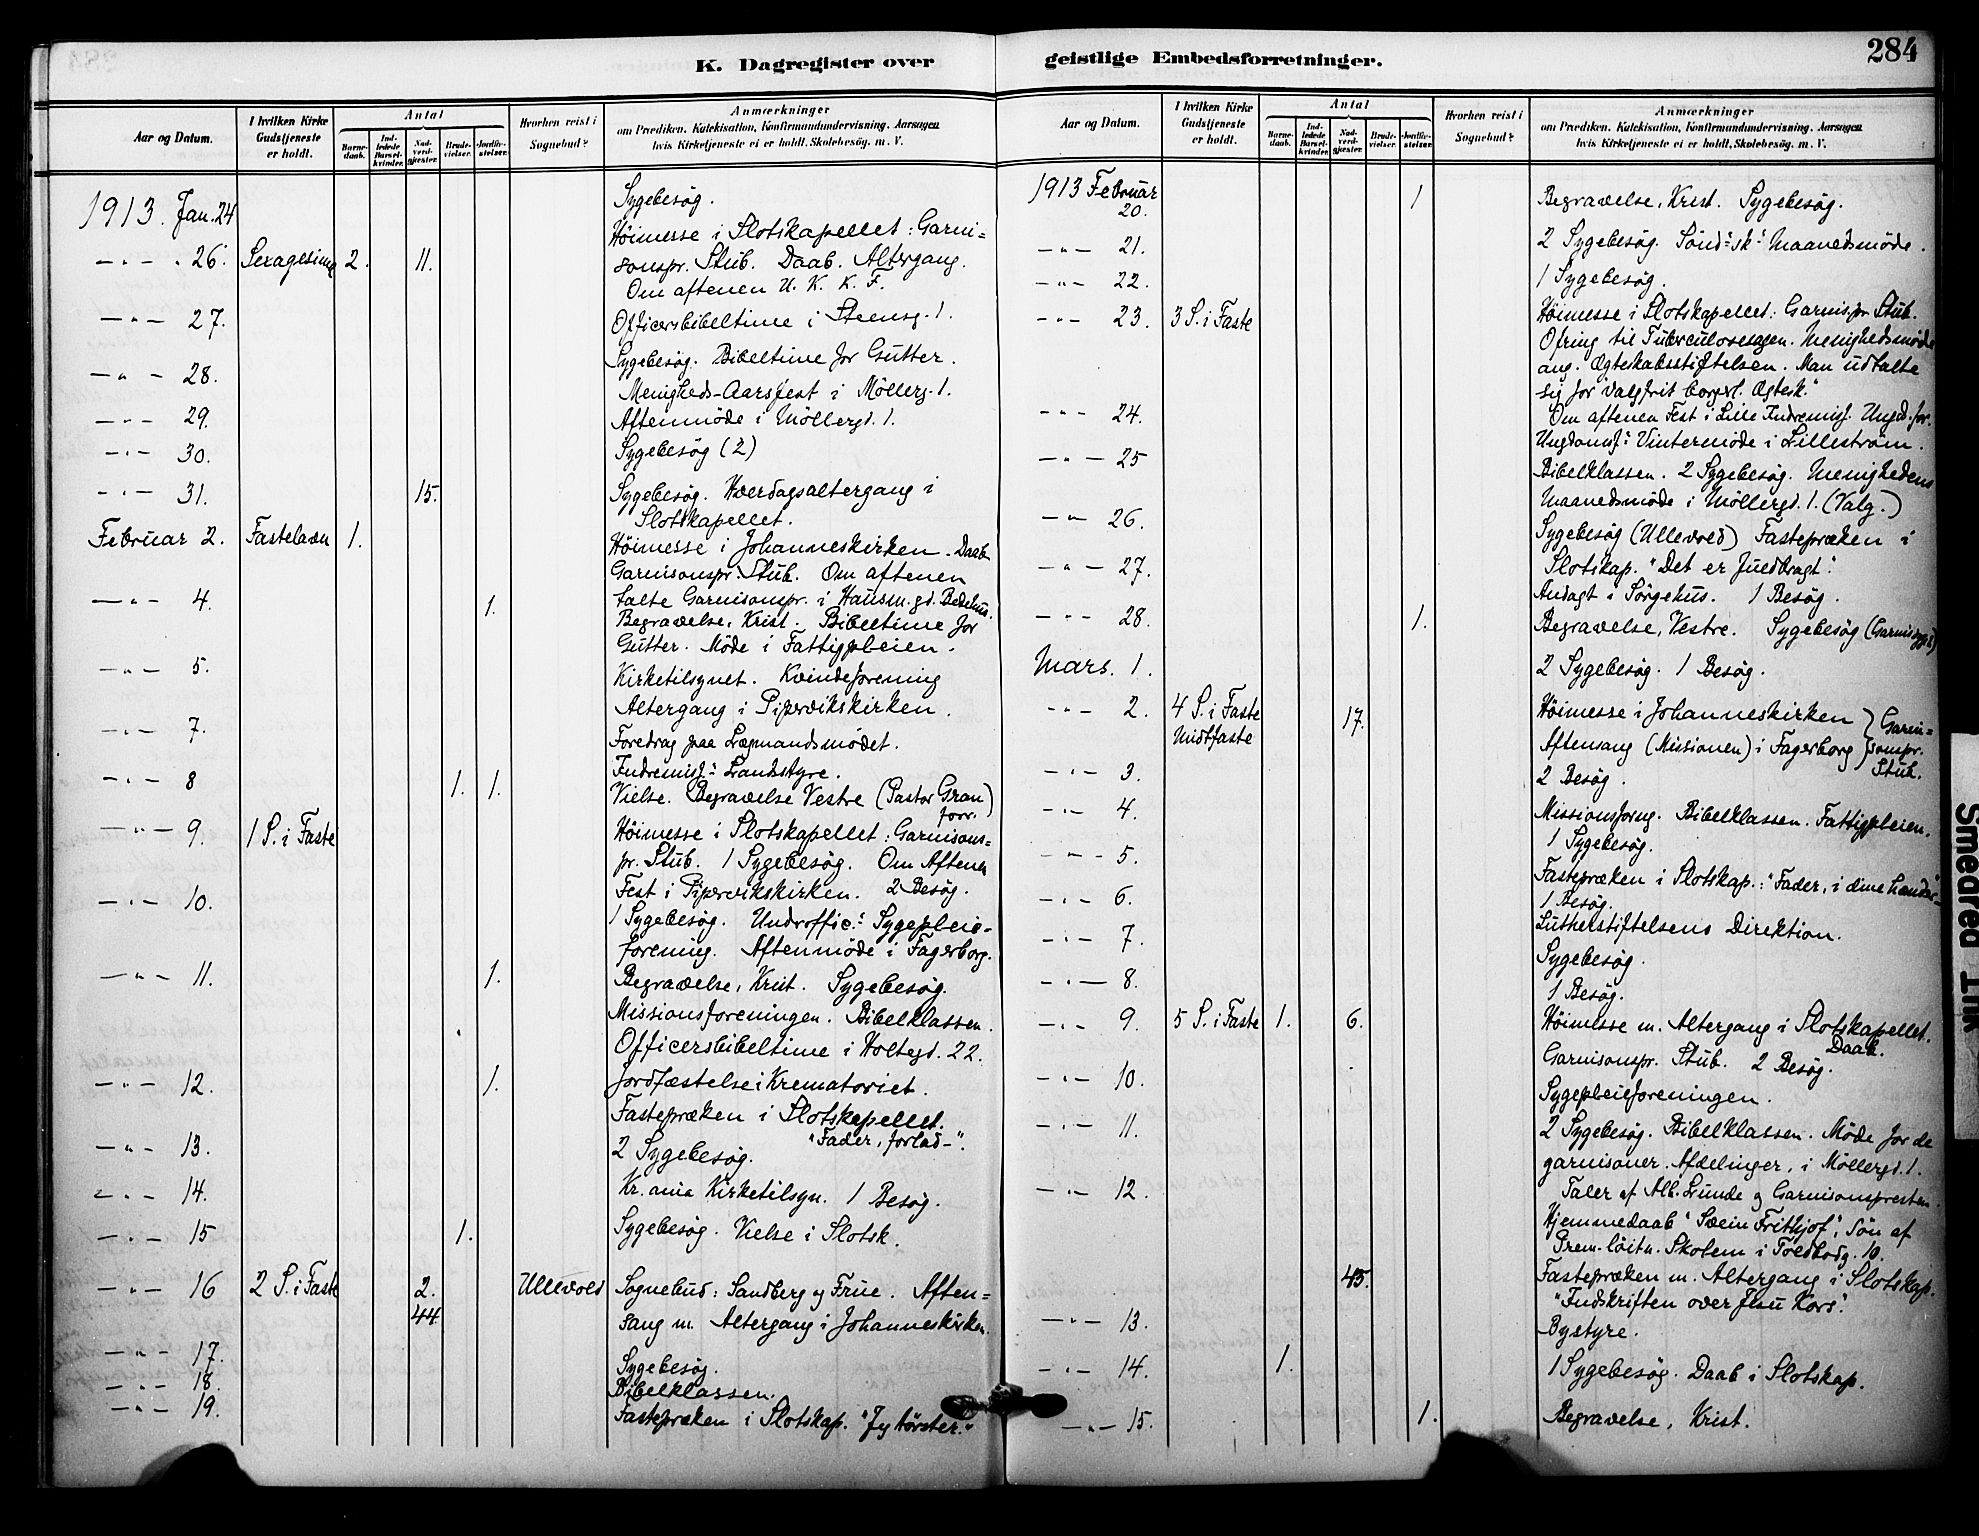 K. Dagregister over
Aar og Datum.
I hvilken Kirke Gudstjeneste er holdt.
Antal
Barnedaab.
Indledede Barselkvinder.
Nadverdgjæster.
Brudevielser.
Jordfæstelser.
Hvorhen reist i Sognebud?
Anmærkninger
om Prædiken, Katekisation, Konfirmandundervisning, Aarsagen
hvis Kirketjeneste ei er holdt, Skolebesøg, m. V.
1913. Jan. 24 Sygebesøg.
Höimesse i Slotskapellet: Garni=
— " — " 26. Sexagesima 2. 11. sonspr. Stub. Daab. Altergang.
Om aftenen U. K. K. F.
— " — 27. Officersbibeltime i Steensg. 1.
— " — 28. Sygebesøg. Bibeltime for Gutter.
Menigheds-Aarsfest i Möllerg. 1.
— " — 29. Aftenmöde i Möllergd. 1.
— " — 30. Sygebesøg (2)
— " — 31. 15. Sygebesøg. Hverdagsaltergang i
Slotskapellet.
Februar 2. Fastelavn 1. Höimesse i Johanneskirken. Daab
Garnisonspr. Stub. Om aftenen
talte Garnisonspr. i Hausm.gd. Bedehus.
— " — 4. 1. Begravelse, Krist. Bibeltime for
Gutter. Möde i Fattigpleien.
— " — 5. Kirketilsynet. Kvindeforening
Altergang i Pipervikskirken.
— " — 7. Foredrag paa Lægmandsmödet.
Indremisj: Landstyre.
— " — 8 1. 1. Vielse. Begravelse Vestre (Pastor Gran)
forr.
— " — 9. 1 S. i Faste Höimesse i Slotskapellet: Garnisons=
pr. Stub. 1 Sygebesøg. Om Aftenen
Fest i Pipervikskirken. 2 Besøg.
— " — 10. 1 Sygebesøg. Underoffic: Sygepleie-
forening. Aftenmöde i Fagerborg.
— " — 11. 1. Begravelse, Krist. Sygebesøg.
Missionsforeningen. Bibelklassen.
Officersbibeltime i Holtegd. 22.
— " — 12. 1. Jordfæstelse i Krematoriet.
Fastepræken i Slotskapellet.
"Fader, forlad—".
— " — 13. 2 Sygebesøg.
— " — 14. Kr.ania Kirketilsyn. 1 Besøg.
— " — 15 1. Sygebesøg. Vielse i Slotsk.
— " — 16 2 S. i Faste 2. Ullevold Sognebud: Sandberg og Frue. Aften=
44 sang m. Altergang i Johanneskirken.
— " — 17. Sygebesøg.
— " — 18. Bibelklassen.
— " — 19. Fastepræken i Slotskap. "Jeg törster."
geistlige Embedsforretninger.
284
Aar og Datum.
I hvilken Kirke Gudstjeneste er holdt.
Antal
Barnedaab.
Indledede Barselkvinder.
Nadverdgjæster.
Brudevielser.
Jordfæstelser.
Hvorhen reist i Sognebud?
Anmærkninger
om Prædiken, Katekisation, Konfirmandundervisning, Aarsagen
hvis Kirketjeneste ei er holdt, Skolebesøg, m. V.
1913 Februar
20. 1 Begravelse, Krist. Sygebesøg.
— " — 21. 2 Sygebesøg. Sönd: sk: Maanedsmöde.
— " — 22. 1 Sygebesøg.
— " — 23. 3 S. i Faste Höimesse i Slotskapellet: Garnis.pr. Stub.
Ofring til Tuberculosesagen. Menighedsmöde
ang. Ægteskabsstiftelsen. Man udtalte
sig for "valgfrit borgerl. Ægtesk."
— " — 24. Om aftenen Fest i Lille Indremisj. Ungd.for.
Ungdomsf: Vintermöde i Lilleström.
— " — 25 Bibelklassen. 2 Sygebesøg. Menighedens
Maanedsmöde i Möllergd. 1. (Valg.)
— " — 26. Sygebesøg (Ullevold) Fastepræken i
Slotskap. "Det er fuldbragt".
— " — 27. Andagt i Sörgehus. 1 Besøg.
— " — 28. 1. Begravelse, Vestre. Sygebesøg
Mars. 1. 2 Sygebesøg. 1 Besøg.
— " — 2. 4 S. i Faste 17. Höimesse i Johanneskirken } Garni=
Midtfaste Aftensang (Missionen) i Fagerborg } sonspr.
Stub.
— " — 3. 2 Besøg.
— " — 4. Missionsforng. Bibelklassen. Fattigpleien.
1 Sygebesøg.
— " — 5. Fastepræken i Slotskap.: "Fader, i dine hænder—"
— " — 6. 1 Besøg.
— " — 7. Lutherstiftelsens Direktion.
Sygebesøg.
— " — 8. 1 Besøg.
— " — 9. 5 S. i Faste 1. 6. Höimesse m. Altergang i Slotskapellet.
Daab.
Garnisonspr. Stub. 2 Besøg.
— " — 10. Sygepleieforeningen.
— " — 11. 2 Sygebesøg. Bibelklassen. Möde for de
garnisoner. Afdelinger, i Möllergd. 1.
— " — 12. Taler af Alb. Lunde og Garnisonspresten.
Hjemmedaab "Svein Frithjof", Sön af
Prem.löitn. Skolem i Toldbodg. 10.
45. Fastepræken m. Altergang i Slotskap.
"Indskriften over Jesu Kors".
— " — 13. Bystyre.
— " — 14. 1. 1 Sygebesøg. Daab i Slotskap.
— " — 15. 1. Begravelse, Krist.
Smeared Ink